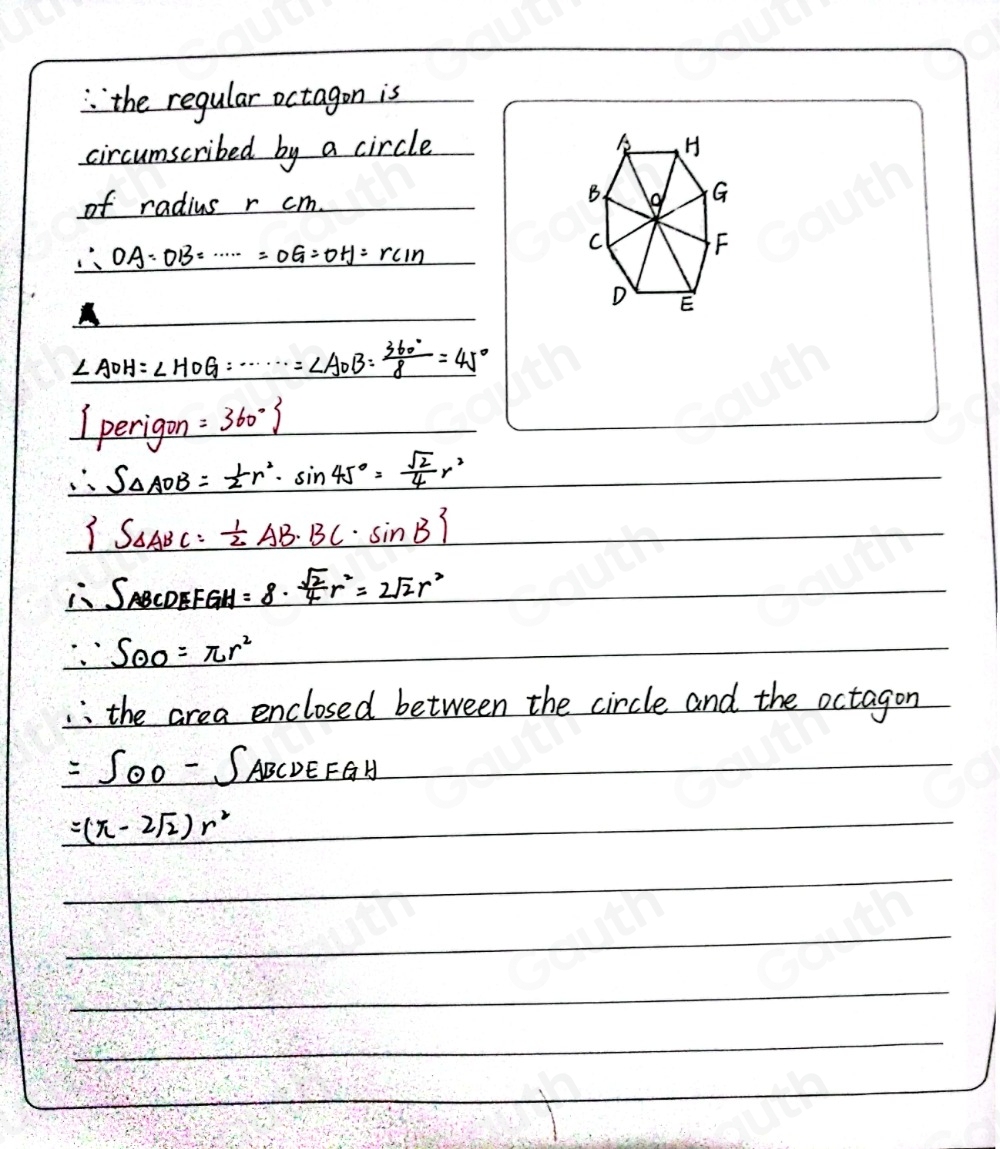 ∵ the regular octagon is
circumscribed by a circle
of radius r cm.
∴ OA=OB=····· =OG=OH=rcm
∠AOH=∠HOG=······=∠AOB=360°/8=45°
{perigon=360°}
∴ S△AOB=1/2r²·sin45°=√2/4 r²
{S△ABC=1/2 AB·BC·sinB}
∴ SABCDEFGH=8·√2/4 r²=2√2r²
∵ S⊙O=πr²
∴ the area enclosed between the circle and the octagon
= S⊙O - SABCDEFGH
=(π-2√2)r²
A H
B O G
C F
D E
Gauth